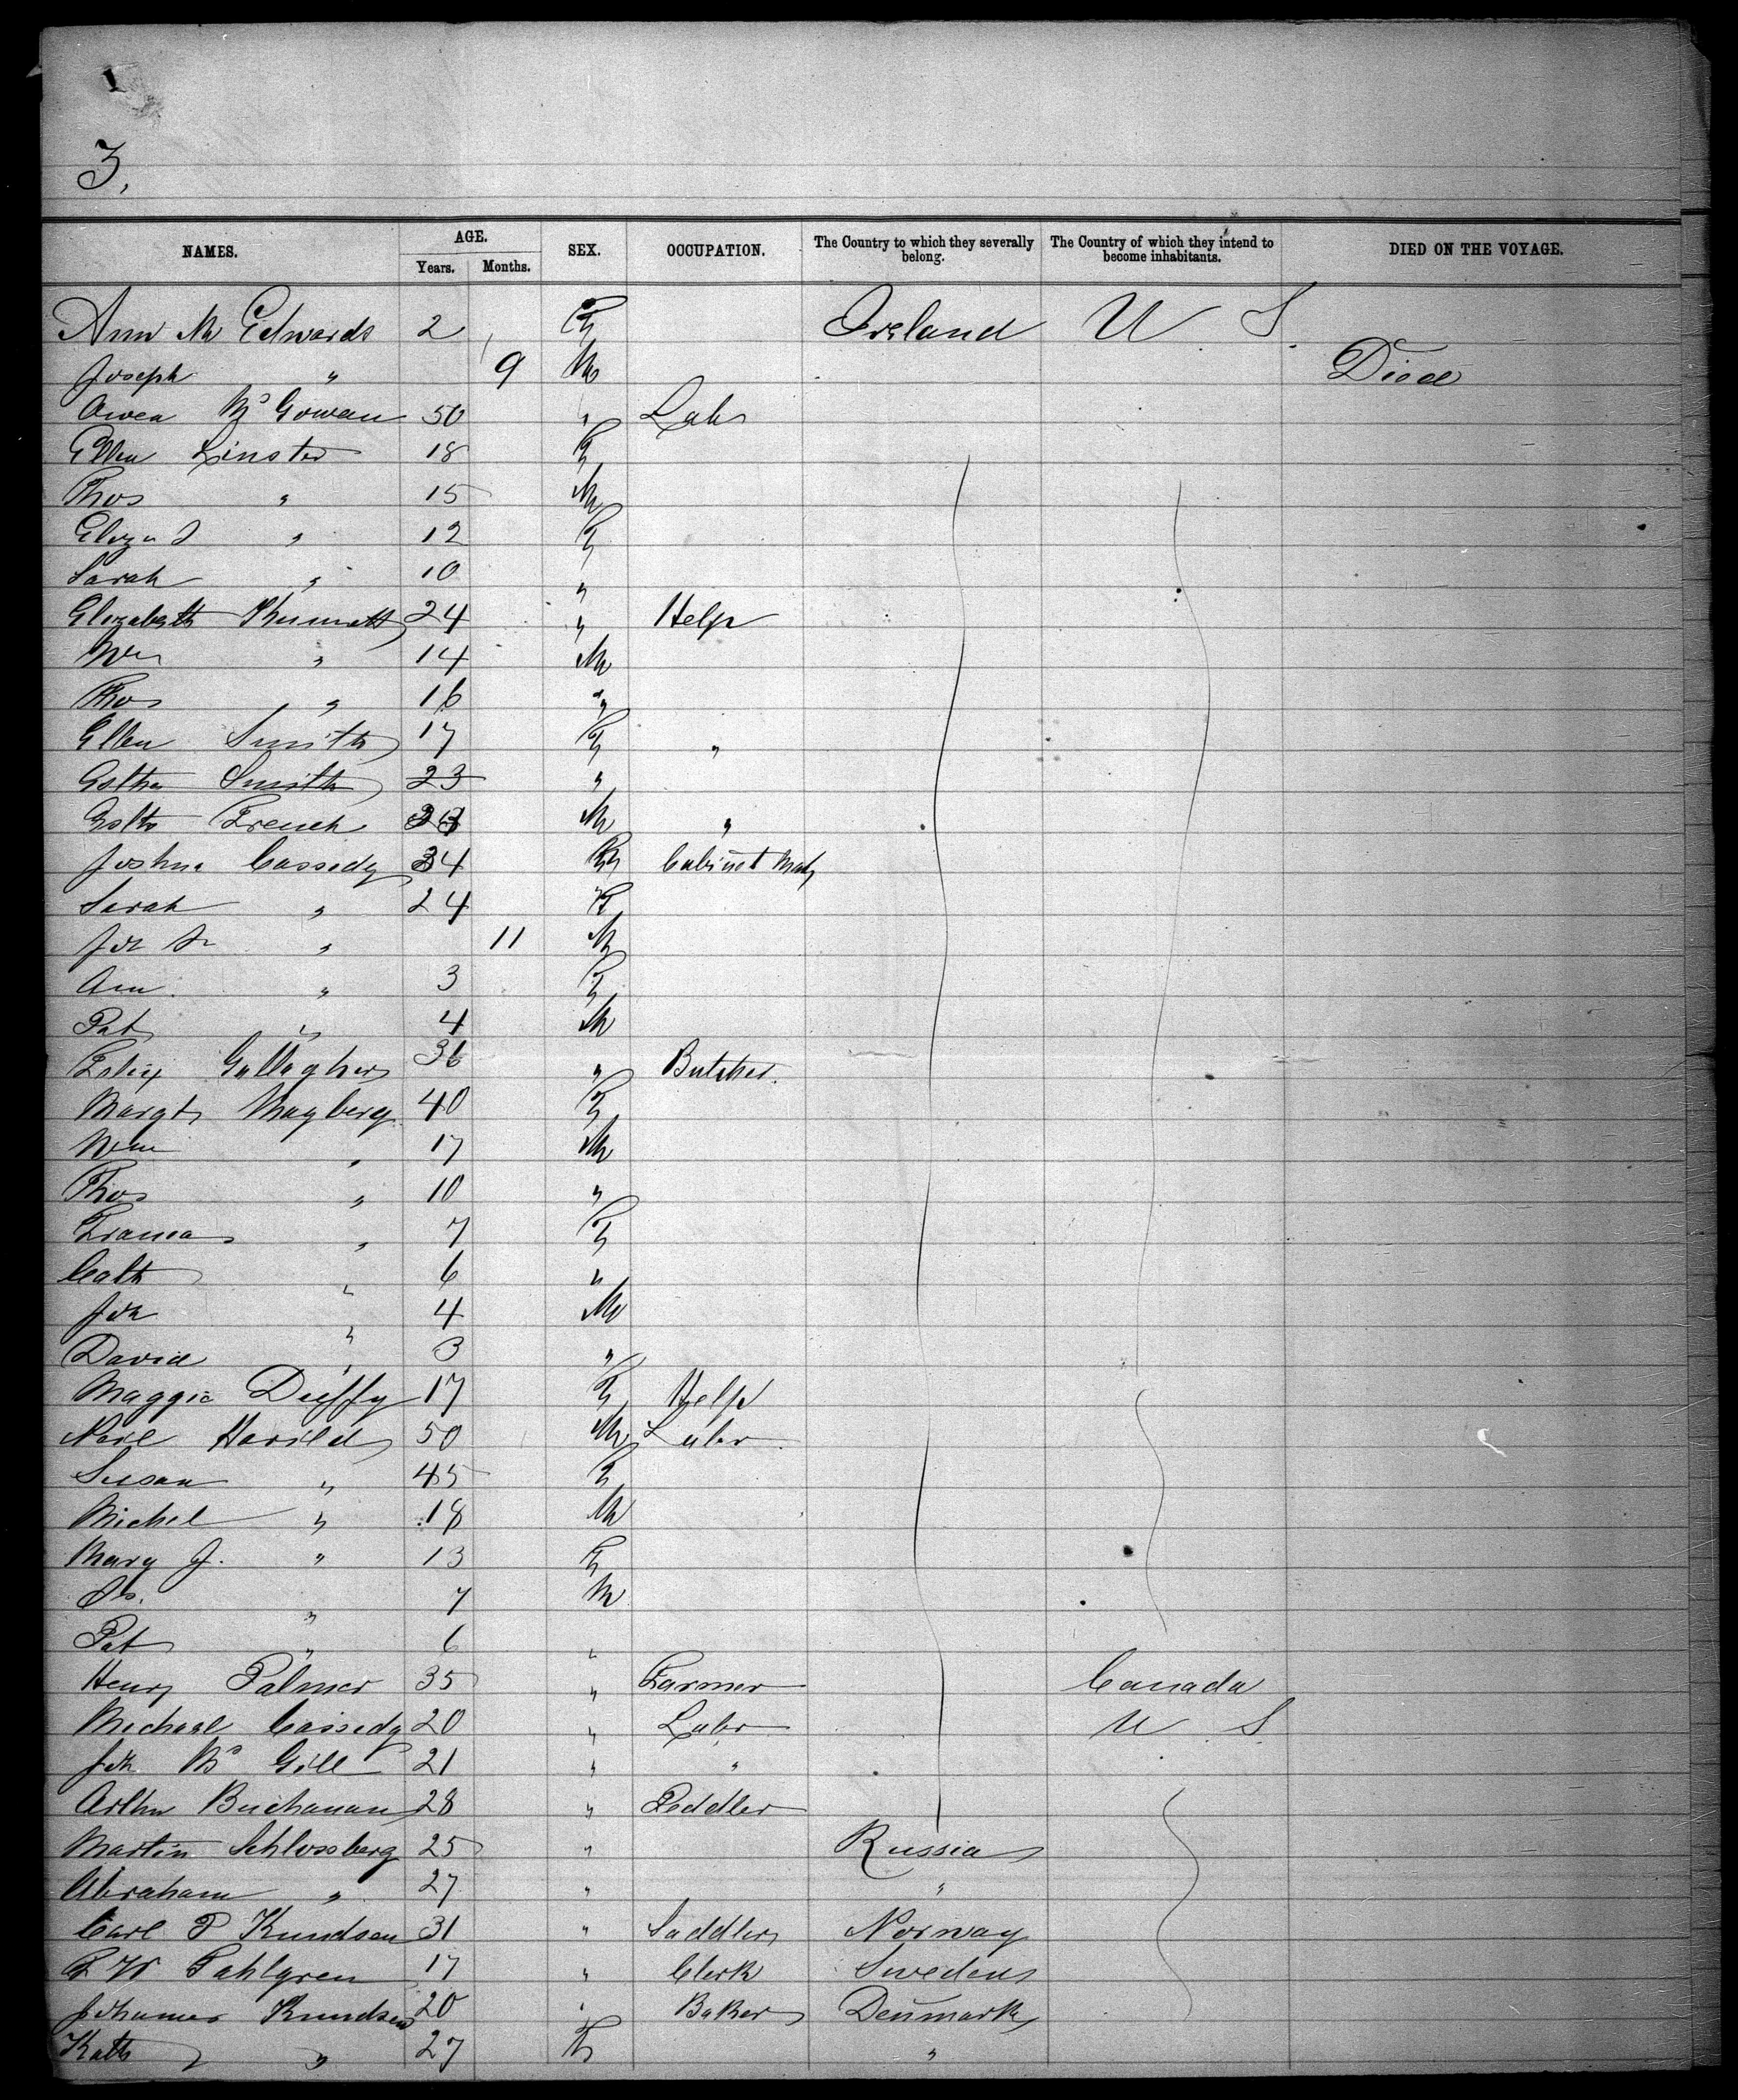 3.
NAMES. AGE. Years. Months. SEX. OCCUPATION. The Country to which they severally belong. The Country of which they intend to become inhabitants. DIED ON THE VOYAGE.
Ann M Edwards 2 F Ireland U S
Joseph " 9 M Died
Owen McGowan 50 " Labr
Ellen Linster 18 F
Thos " 15 M
Eliza J " 12 F
Sarah " 10 "
Elizabeth 24 " Help
Wm " 14 M
Thos " 16 "
Ellen Smith 17 F "
Esther Smith 23 "
French M "
Joshua Cassedy 34 M Cabinet Mak
Sarah " 24 F
Jn Sr " 11 M
Ann " 3 F
Pat " 4 M
Felix Gallagher 36 " Butcher.
Margt Mayberg 40 F
Wm " 17 M
Thos " 10 "
" 7 F
Cath " 6 "
Jn " 4 M
David " 3 "
Maggie Duffy 17 F Help
50 M Labr
Susan " 45 F
Michel " 18 M
Mary J. " 13 F
" 7 M
Pat " 6 "
Henry Palmer 35 " Farmer Canada
Michael Cassedy 20 " Labr U S
Jn McGill 21 " "
Arthur Buchanan 28 " Peddler
Martin Schlossberg 25 " Russia
Abraham " 27 " "
Carl P Knudsen 31 " Saddler Norway
F W Fahlgren 17 " Clerk Sweden
Johannes Knudsen 20 " Baker Denmark
Kath " 27 F "